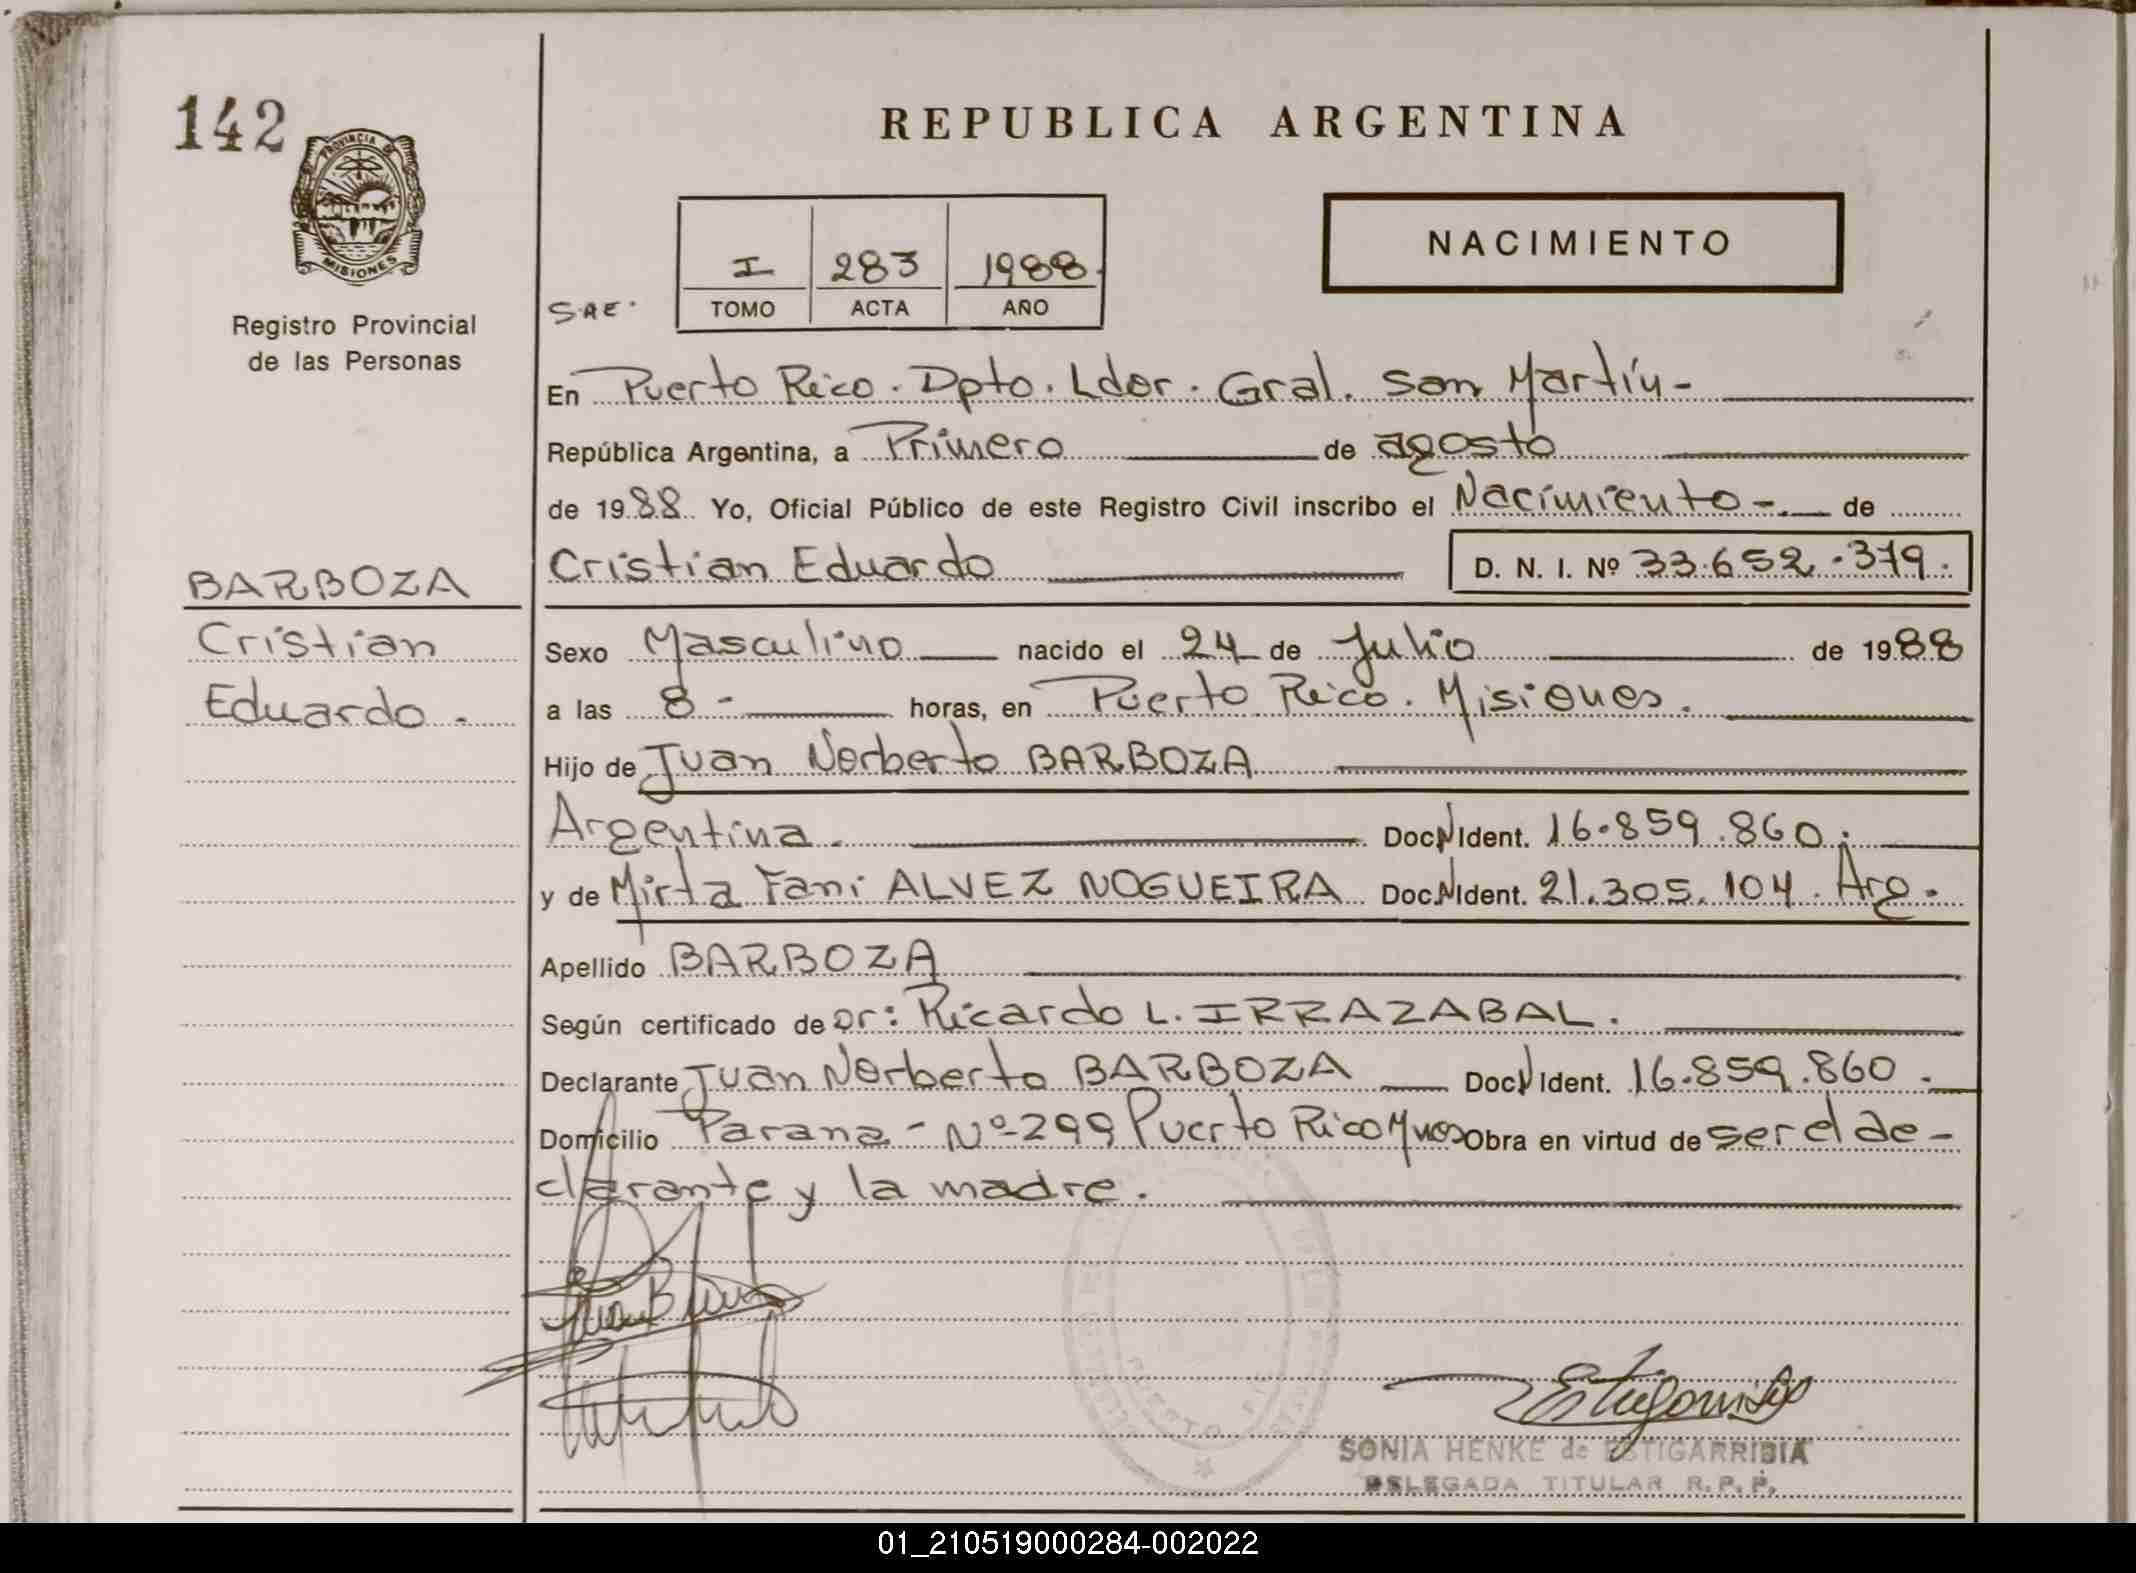 142
PROVINCIA DE
MISIONES
Registro Provincial
de las Personas
REPUBLICA ARGENTINA
NACIMIENTO
I 283 1988.
TOMO ACTA AÑO
S.A.E.
En Puerto Rico. Dpto. Ldor. Gral. San Martín-
República Argentina, a Primero de agosto
de 1988 Yo, Oficial Público de este Registro Civil inscribo el Nacimiento-. de
Cristian Eduardo D. N. I. Nº 33.652.379.
BARBOZA
Cristian
Eduardo.
Sexo Masculino nacido el 24 de Julio de 1988
a las 8- horas, en Puerto Rico. Misiones.
Hijo de Juan Norberto BARBOZA
Argentina. Doc.N Ident. 16.859.860.
y de Mirta Fani ALVEZ NOGUEIRA Doc.N Ident. 21.305.104. Arg.
Apellido BARBOZA
Según certificado de Dr: Ricardo L. IRRAZABAL.
Declarante Juan Norberto BARBOZA Doc.N Ident. 16.859.860.
Domicilio Parana- Nº 299 Puerto Rico Mnes Obra en virtud de ser el de-
clarante y la madre.
PUERTO RICO
SONIA HENKE de ESTIGARRIBIA
DELEGADA TITULAR R.P.P.
01_210519000284-002022